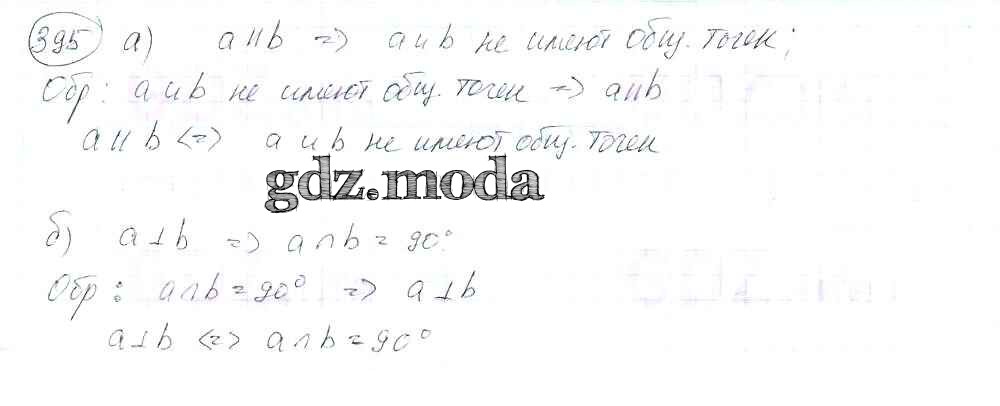 395 а) a || b => a и b не имеют общ. точек;
Обр: a и b не имеют общ. точек => a || b
a || b <=> a и b не имеют общ. точек
gdz.moda
б) a ⊥ b => a ∩ b = 90°.
Обр: a ∩ b = 90° => a ⊥ b
a ⊥ b <=> a ∩ b = 90°